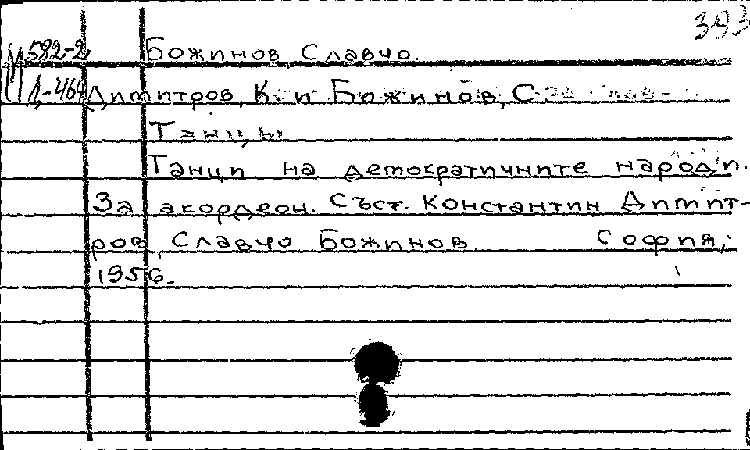 393
М 582-2 Божинов Славчо
Д-464 Димитров, К. и Божинов, С
Танцы
Танци на демократичните народи.
За акордеон. Съст. Константин Димит-
ров, Славчо Божинов София,
1956.